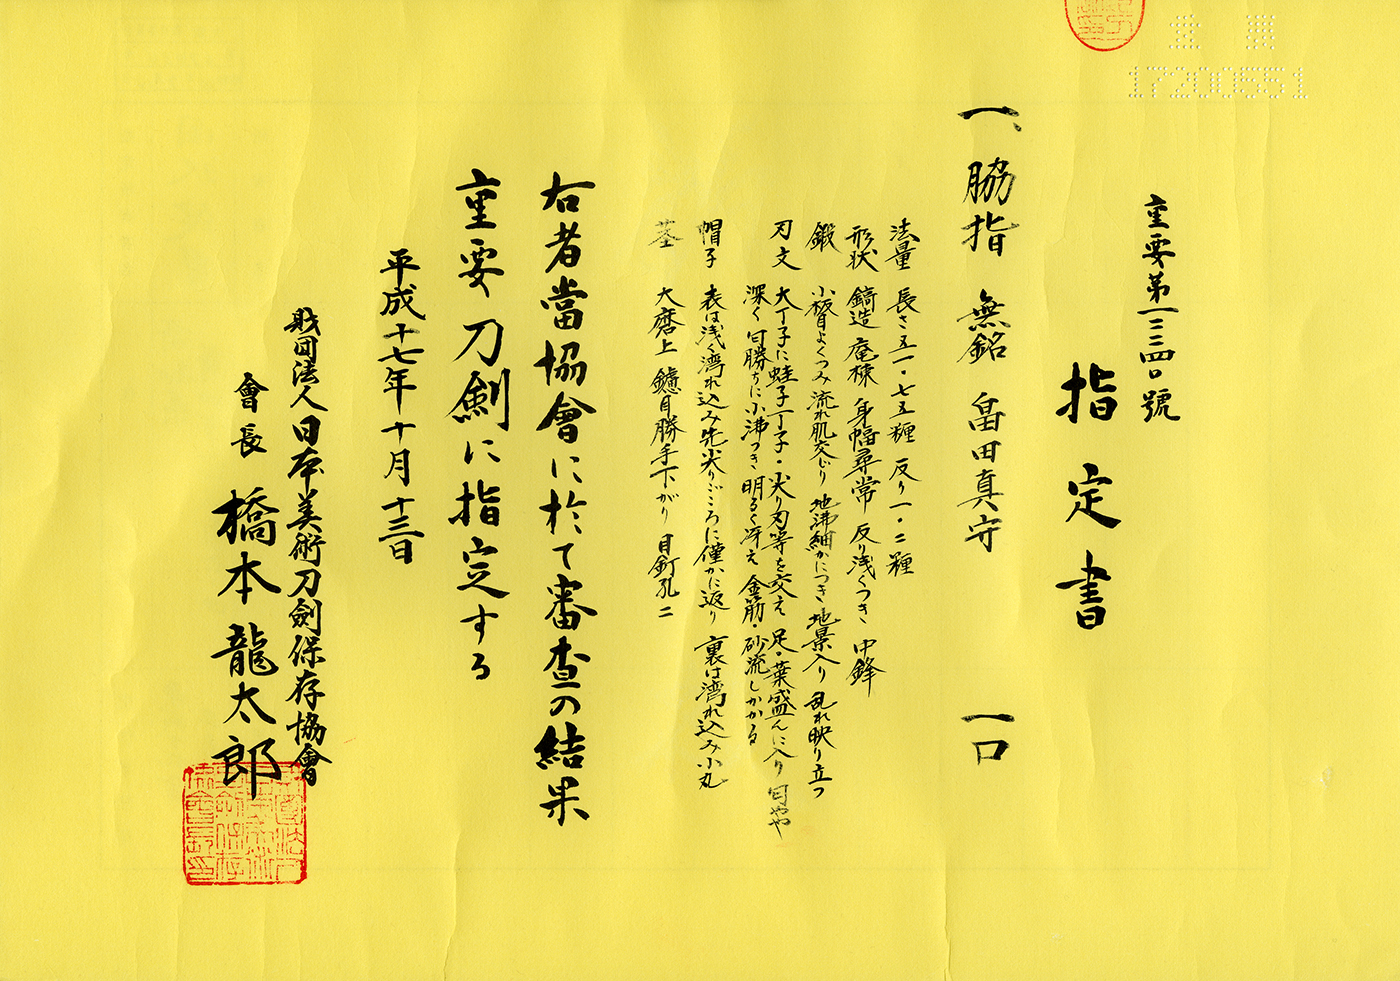 重要
17200551
重要第一二三四〇號
指定書
一、脇指 無銘 畠田真守 一口
法量 長さ五一・七五糎 反り一・二糎
形状 鎬造 庵棟 身幅尋常 反り浅くつき 中鋒
鍛 小板目よくつみ流れ肌交じり 地沸細かにつき 地景入り 乱れ映り立つ
刃文 大丁子に蛙子丁子・尖り刃等を交え 足・葉盛んに入り 匂やや
深く 匂勝ちに小沸つき 明るく冴え 金筋・砂流しかかる
帽子 表は浅く湾れ込み先尖りごころに僅かに返り 裏は湾れ込み小丸
茎 大磨上 鑢目勝手下がり 目釘孔二
右者當協會に於て審査の結果
重要刀剣に指定する
平成十七年十月十三日
財団法人日本美術刀劍保存協會
會長 橋本龍太郎